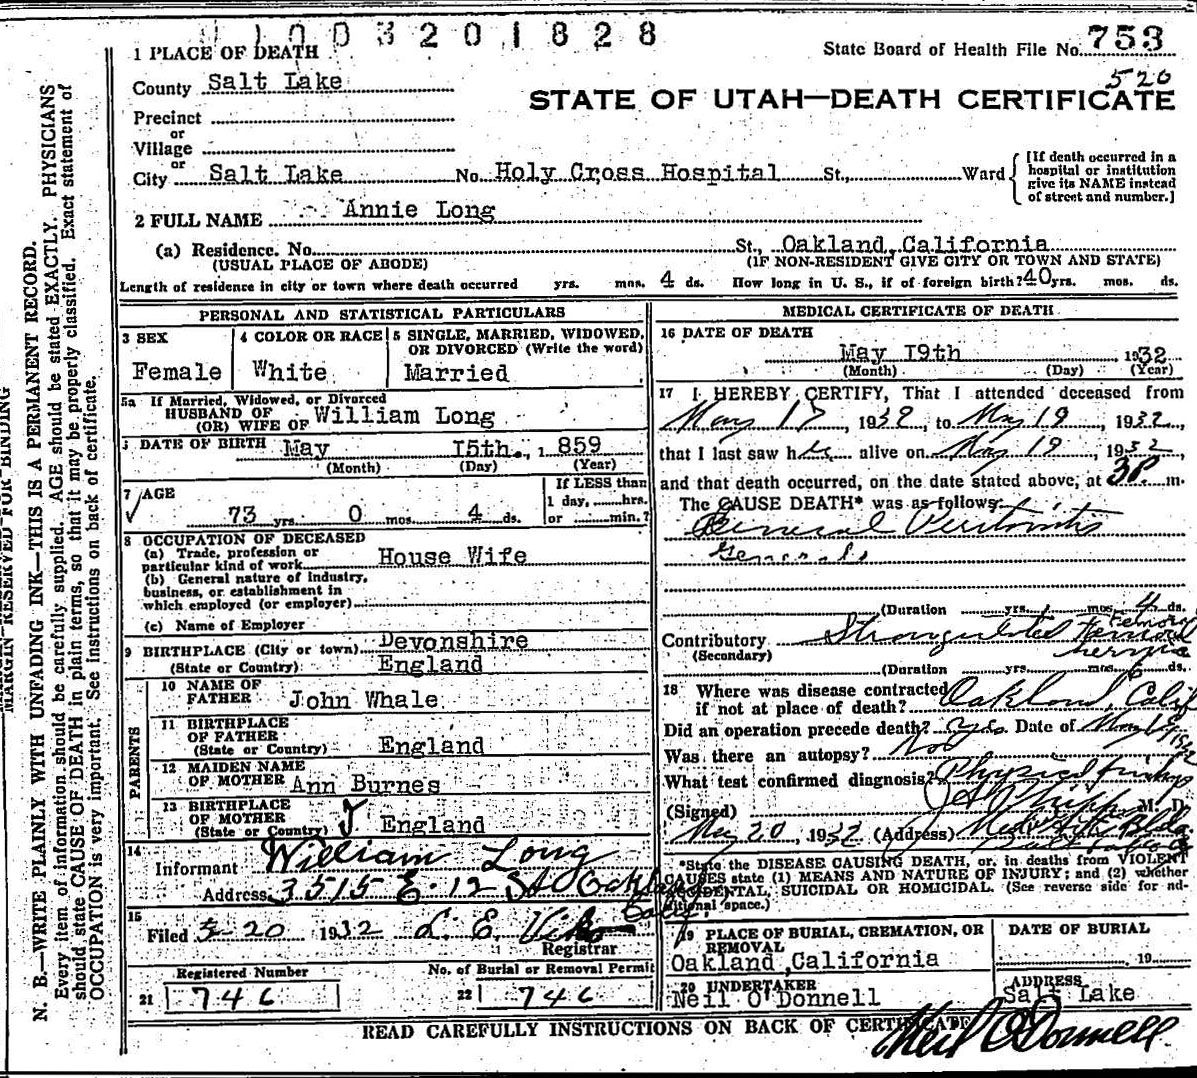 01003201828
State Board of Health File No. 753
520
1 PLACE OF DEATH
County Salt Lake
STATE OF UTAH—DEATH CERTIFICATE
Precinct
or
Village
or
City Salt Lake No. Holy Cross Hospital St., Ward
[If death occurred in a hospital or institution give its NAME instead of street and number.]
2 FULL NAME Annie Long
(a) Residence. No. St., Oakland, California
(USUAL PLACE OF ABODE) (IF NON-RESIDENT GIVE CITY OR TOWN AND STATE)
Length of residence in city or town where death occurred yrs. mos. 4 ds. How long in U. S., if of foreign birth? 40 yrs. mos. ds.
PERSONAL AND STATISTICAL PARTICULARS
3 SEX
Female
4 COLOR OR RACE
White
5 SINGLE, MARRIED, WIDOWED, OR DIVORCED (Write the word)
Married
5a If Married, Widowed, or Divorced
HUSBAND OF
(OR) WIFE OF William Long
DATE OF BIRTH May 15th., 1859
(Month) (Day) (Year)
7 AGE
73 yrs. 0 mos. 4 ds.
If LESS than
1 day, hrs.
or min.?
8 OCCUPATION OF DECEASED
(a) Trade, profession or
particular kind of work House Wife
(b) General nature of industry,
business, or establishment in
which employed (or employer)
(c) Name of Employer
9 BIRTHPLACE (City or town) Devonshire
(State or Country) England
PARENTS
10 NAME OF
FATHER John Whale
11 BIRTHPLACE
OF FATHER
(State or Country) England
12 MAIDEN NAME
OF MOTHER Ann Burnes
13 BIRTHPLACE
OF MOTHER
(State or Country) England
14
Informant William Long
Address 3515 E. 12 St Oakland
Calif.
15
Filed 5-20 1932 L. E.
Registrar
Registered Number
21 746
No. of Burial or Removal Permit
22 746
MEDICAL CERTIFICATE OF DEATH
16 DATE OF DEATH
May 19th 1932
(Month) (Day) (Year)
17 I HEREBY CERTIFY, That I attended deceased from
May 17, 1932, to May 19, 1932,
that I last saw her alive on May 19, 1932
and that death occurred, on the date stated above, at 3P m.
The CAUSE DEATH* was as follows:
General Peritonitis
(Duration yrs. mos. 4 ds.
Contributory Strangulated Femoral
Femoral
hernia
(Secondary)
(Duration yrs. mos. 6 ds.
18 Where was disease contracted
if not at place of death? Oakland, Calif
Did an operation precede death? yes Date of May 18
1932
Was there an autopsy? No
What test confirmed diagnosis? Physical findings
(Signed) M. D.
May 20, 1932 (Address)
*State the DISEASE CAUSING DEATH, or, in deaths from VIOLENT
CAUSES state (1) MEANS AND NATURE OF INJURY; and (2) whether
ACCIDENTAL, SUICIDAL OR HOMICIDAL. (See reverse side for additional space.)
19 PLACE OF BURIAL, CREMATION, OR
REMOVAL
Oakland, California
DATE OF BURIAL
19
20 UNDERTAKER
Neil O'Donnell
ADDRESS
Salt Lake
READ CAREFULLY INSTRUCTIONS ON BACK OF CERTIFICATE
Neil O'Donnell
MARGIN RESERVED FOR BINDING
N. B.—WRITE PLAINLY WITH UNFADING INK—THIS IS A PERMANENT RECORD.
Every item of information should be carefully supplied. AGE should be stated EXACTLY. PHYSICIANS
should state CAUSE OF DEATH in plain terms, so that it may be properly classified. Exact statement of
OCCUPATION is very important. See instructions on back of certificate.